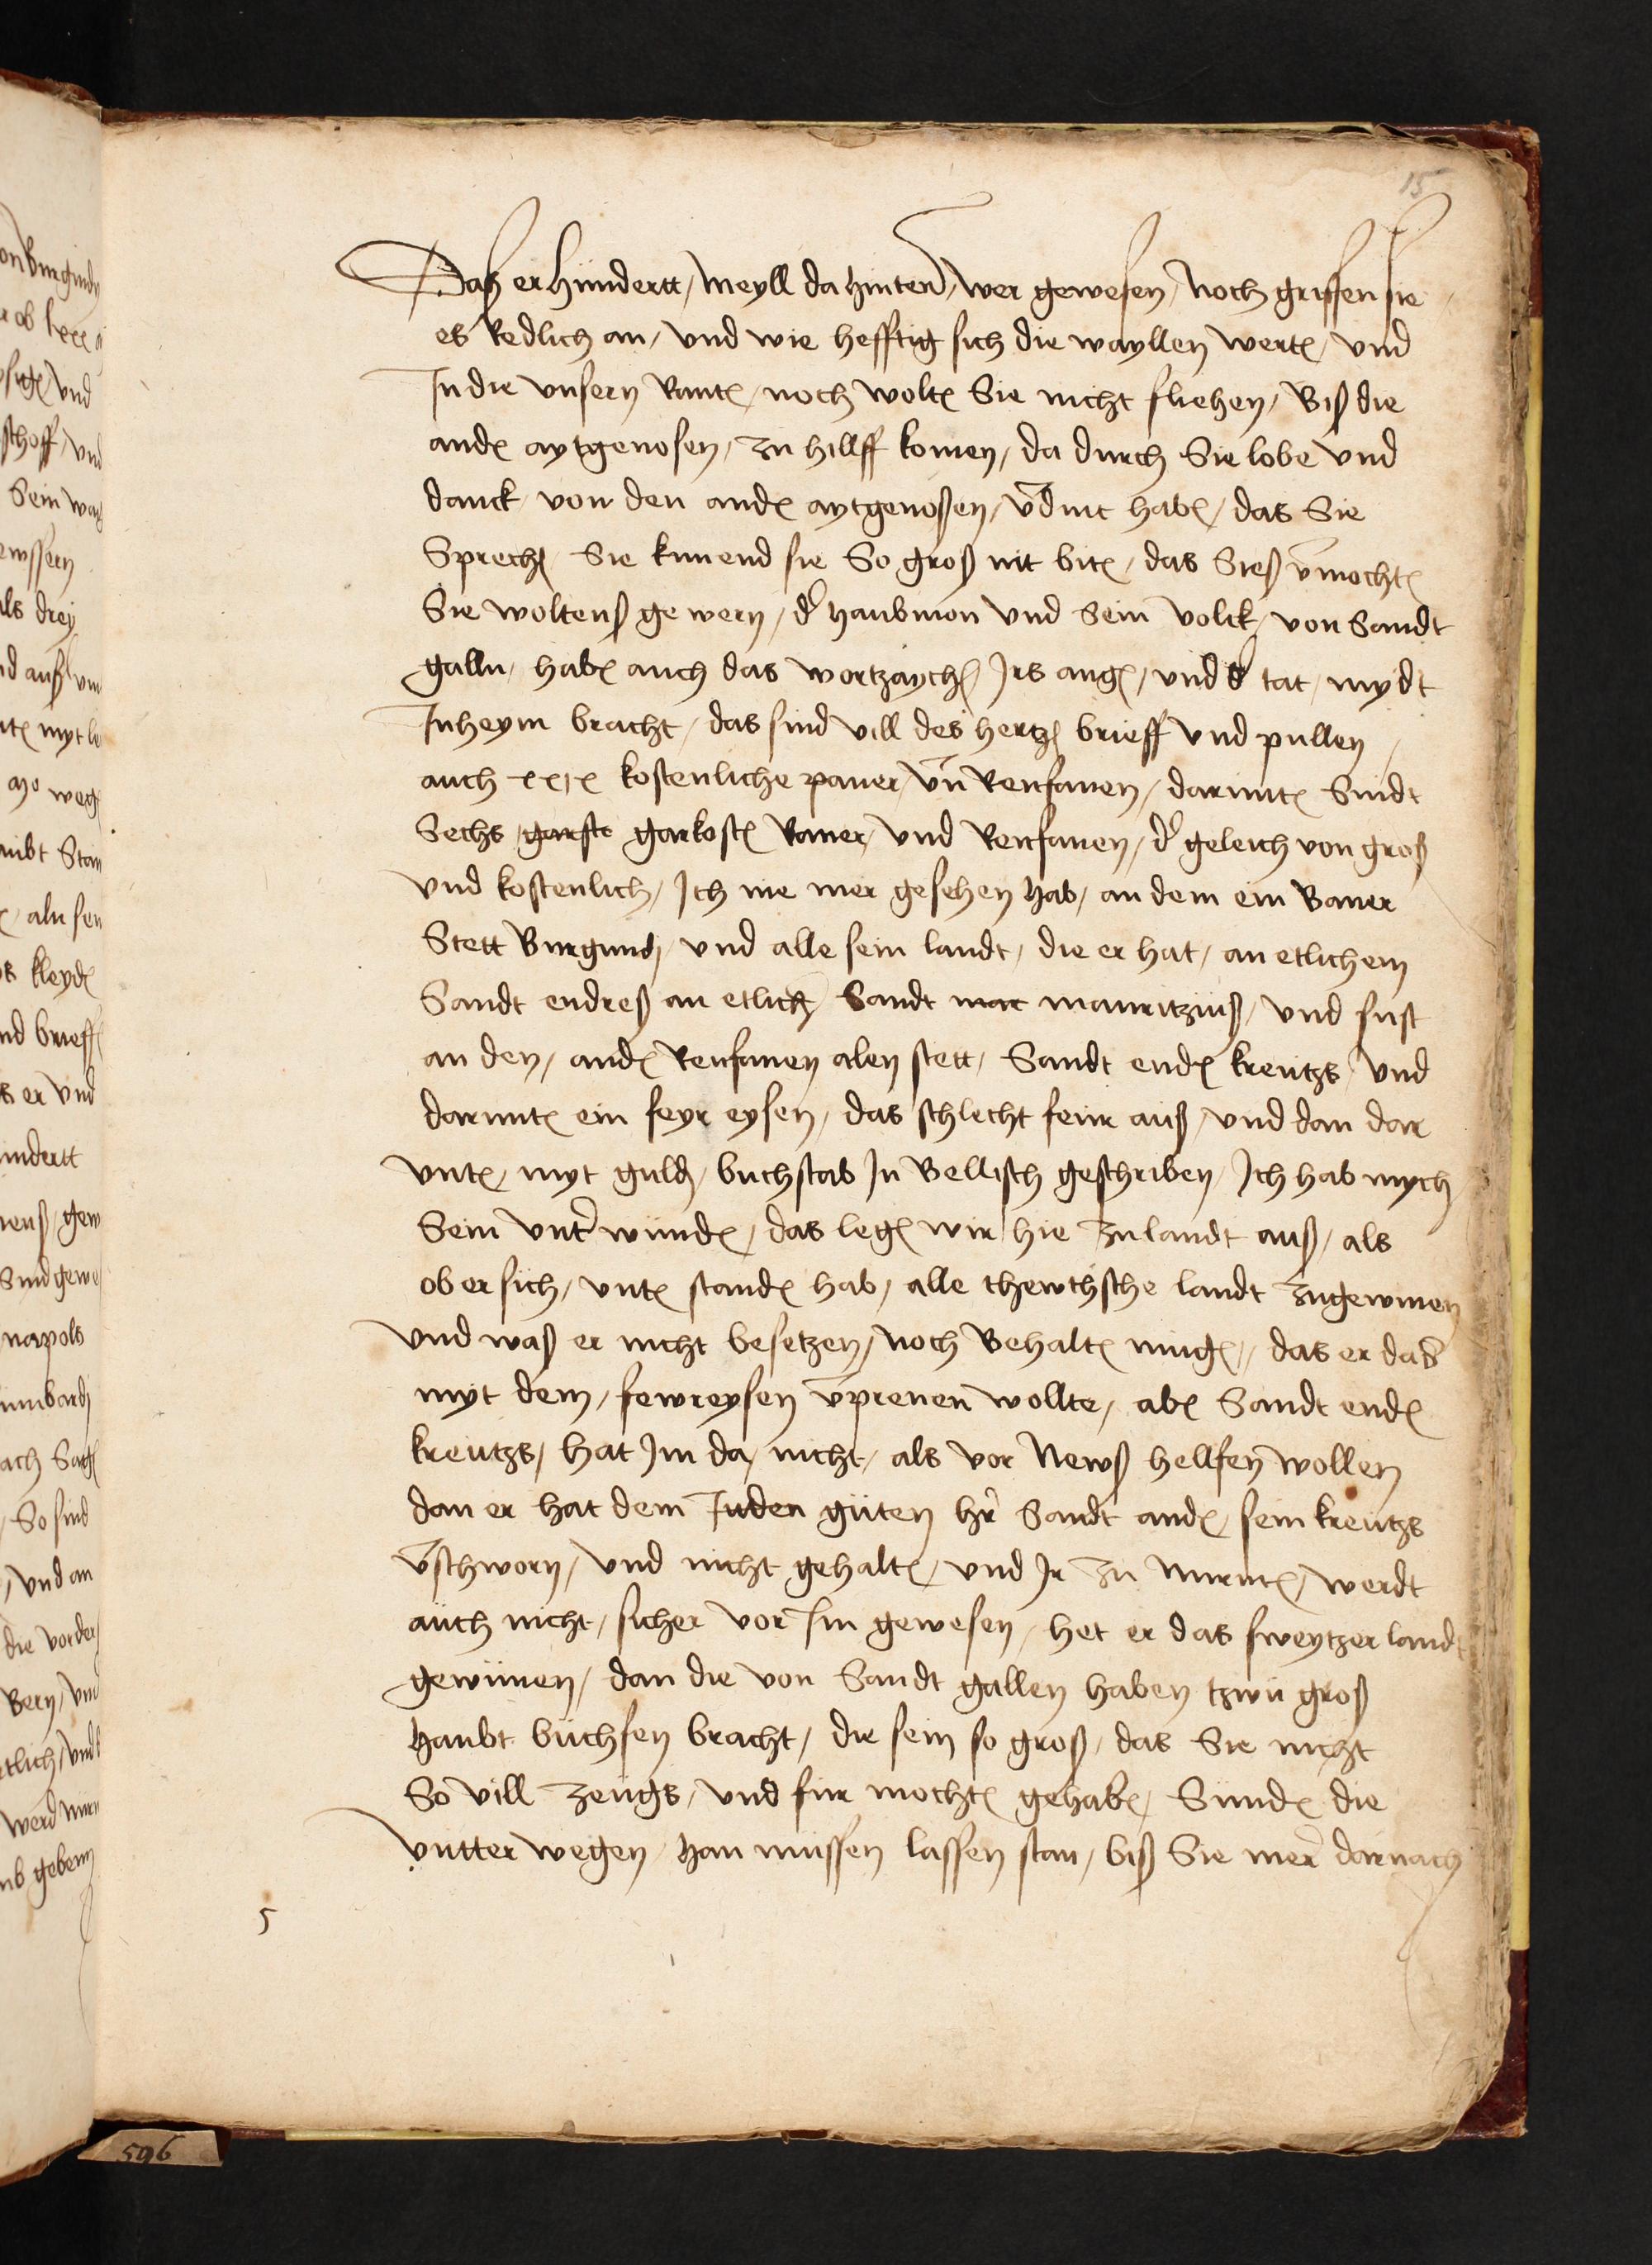 15
Das er hundertt / meyll da hinten / wer gewesen / noch griffen sie
es Redlich an / vnd wie hefftig sich die wayllen wertn / vnd
In die vnsern Rantn / noch woltn Sie nicht fliehen / Biß die
andn aytgenosen / zu hillff komen / da durch Sie lobe vnd
danck / von den andn aytgenoßen / vdint habn / das Sie
Sprechn Sie kunend sie So groß nit bitn / das Sieß vmochtn
Sie woltenß ge wern / dr haubmon vnd Sein volck / von Sandt
galln / habn auch das wortzaychn / Irs angn / vnd dr tat / mydt
In heym bracht / das sind vill des hertzn brieff vnd pullen /
auch xxix kostenliche paner / vn Renfanen / daruntn Sindt
Sechs garste garkostn Raner / vnd Renfanen / dr geleich von groß
vnd kostenlich / Ich nie mer gesehen hab / an dem ein Baner
Stett Burgund / vnd alle sein landt / die er hat / an etlichem
Sandt endreß an etlichn Sandt mar mauritziuß / vnd sust
an den / andn Renfanen alen stett / Sandt endn kreutzs / vnd
daruntn ein feyr eysen / das schlecht feur auß / vnd dan dar
vntn / myt guldn / buchstab In Bellisch geschriben / Ich hab mych
Sein vntr wundn / das legn wir hie zu landt auß / als
ob er sich / vntn standn hab / alle thewthsche landt zugewinen
vnd waß er nicht besetzen / noch Behaltn mugn / das er das
myt dem / fewreysen vprenen wollte / abn Sandt endn
kreutzs / hat Im da / nicht / als vor Newß hellfen wollen
dan er hat dem Juden guten hr Sandt andn / sein kreutzs
vschworn / vnd nicht gehaltn / vnd Ir zu Nurmtn / werdt
auch nicht / sicher vor Im gewesen / het er das sweytzer landt
gewunen / dan die von Sandt gallen haben tzwu groß
haubt buchsen bracht / die sein so groß / das Sie nicht
So vill zeugs / vnd fur mochtn gehabn / Sundn die
vntter wegen / han mussen lassen stan / biß Sie mer darnach
5
596